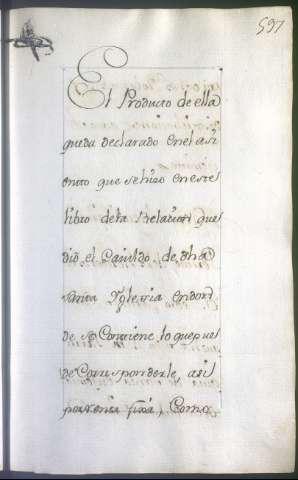 597
El Producto de ella
queda declarado en el asi
ento que se hizo en este
libro de la Relacion que
dió el Cavildo, de dha
Santa Yglesia en don
de se Contiene, lo que pue
de Corresponderle, asi
por renta fixa, Como